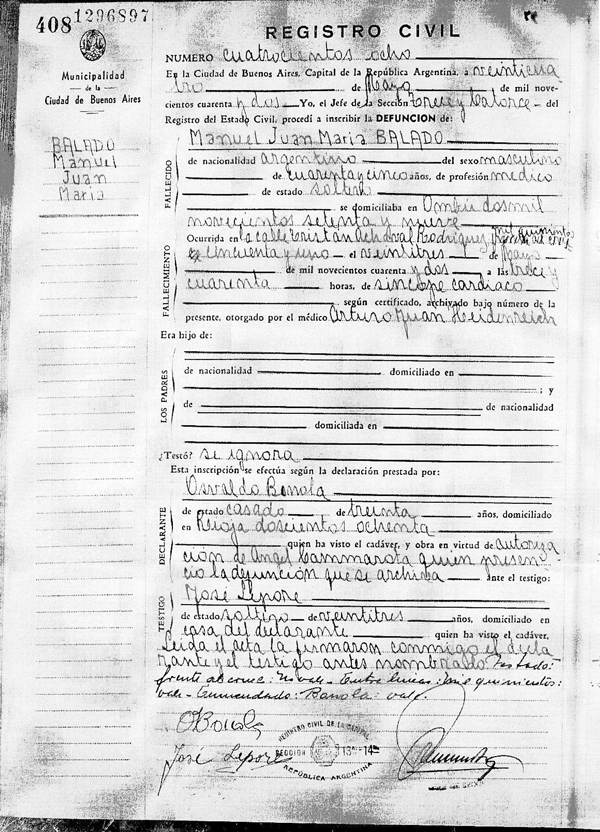 408 1296897
Municipalidad
de la
Ciudad de Buenos Aires
BALADO
Manuel
Juan
Maria
REGISTRO CIVIL
NUMERO cuatrocientos ocho
En la Ciudad de Buenos Aires, Capital de la República Argentina, a veinticua
tro de Mayo de mil nove-
cientos cuarenta y dos Yo, el Jefe de la Sección Trece y Catorce del
Registro del Estado Civil, procedí a inscribir la DEFUNCION de:
Manuel Juan Maria BALADO
FALLECIDO
de nacionalidad argentino del sexo masculino
de cuarenta y cinco años, de profesión medico
de estado soltero
se domiciliaba en Ombú dos mil
novecientos setenta y nueve
mil quinientos
FALLECIMIENTO
Ocurrida en la calle Tristan Achaval Rodriguez frente al
cincuenta y uno el veintitres de Mayo
de mil novecientos cuarenta y dos a las trece y
cuarenta horas, de sincope cardiaco
según certificado, archivado bajo número de la
presente, otorgado por el médico Arturo Juan Heidenreich
Era hijo de:
LOS PADRES
de nacionalidad domiciliado en
; y
de de nacionalidad
domiciliada en
¿Testó? se ignora
Esta inscripción se efectúa según la declaración prestada por:
DECLARANTE
Osvaldo Bonola
de estado casado de treinta años, domiciliado
en Rioja doscientos ochenta
quien ha visto el cadáver, y obra en virtud de autoriza
ción de Angel Cammarota quien presen
ció la defunción que se archiva ante el testigo:
TESTIGO
José Lepore
de estado soltero de veintitres años, domiciliado en
casa del declarante quien ha visto el cadáver.
Leida el acta la firmaron conmigo el decla
rante y el testigo antes nombrado. Testado:
frente al cruce: No vale Entre lineas: mil quinientos:
vale Enmendado: Bonola: vale.
OBonola
José Lepore
REGISTRO CIVIL DE LA CAPITAL
SECCION 13 14
REPÚBLICA ARGENTINA